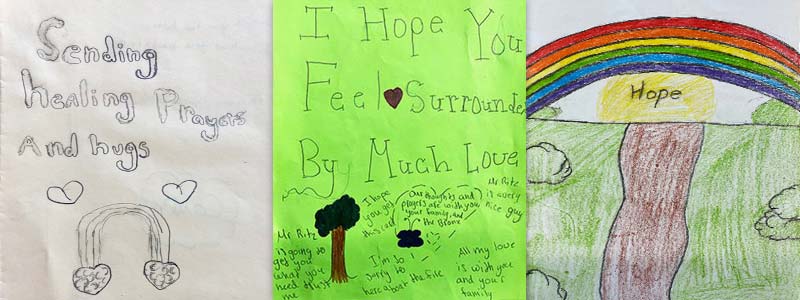 Sending
Healing Prayers
And hugs
I Hope You
Feel Surrounde
By Much Love
Mr Ritz
is going to
get you
what you
need trust
me
I hope
you get
this card
Our thoughts and
prayers are with you,
your family, and
the Bronx
Mr Ritz
is a very
nice guy
I'm so
sorry to
here about the fire
All my love
is with you
and you's
family
Hope